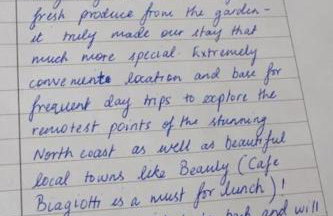 fresh produce from the garden -
it truly made our stay that
much more special. Extremely
convenient location and base for
frequent day trips to explore the
remotest points of the stunning
North coast as well as beautiful
local towns like Beauly (Cafe
Biagiotti is a must for lunch)!
back and will